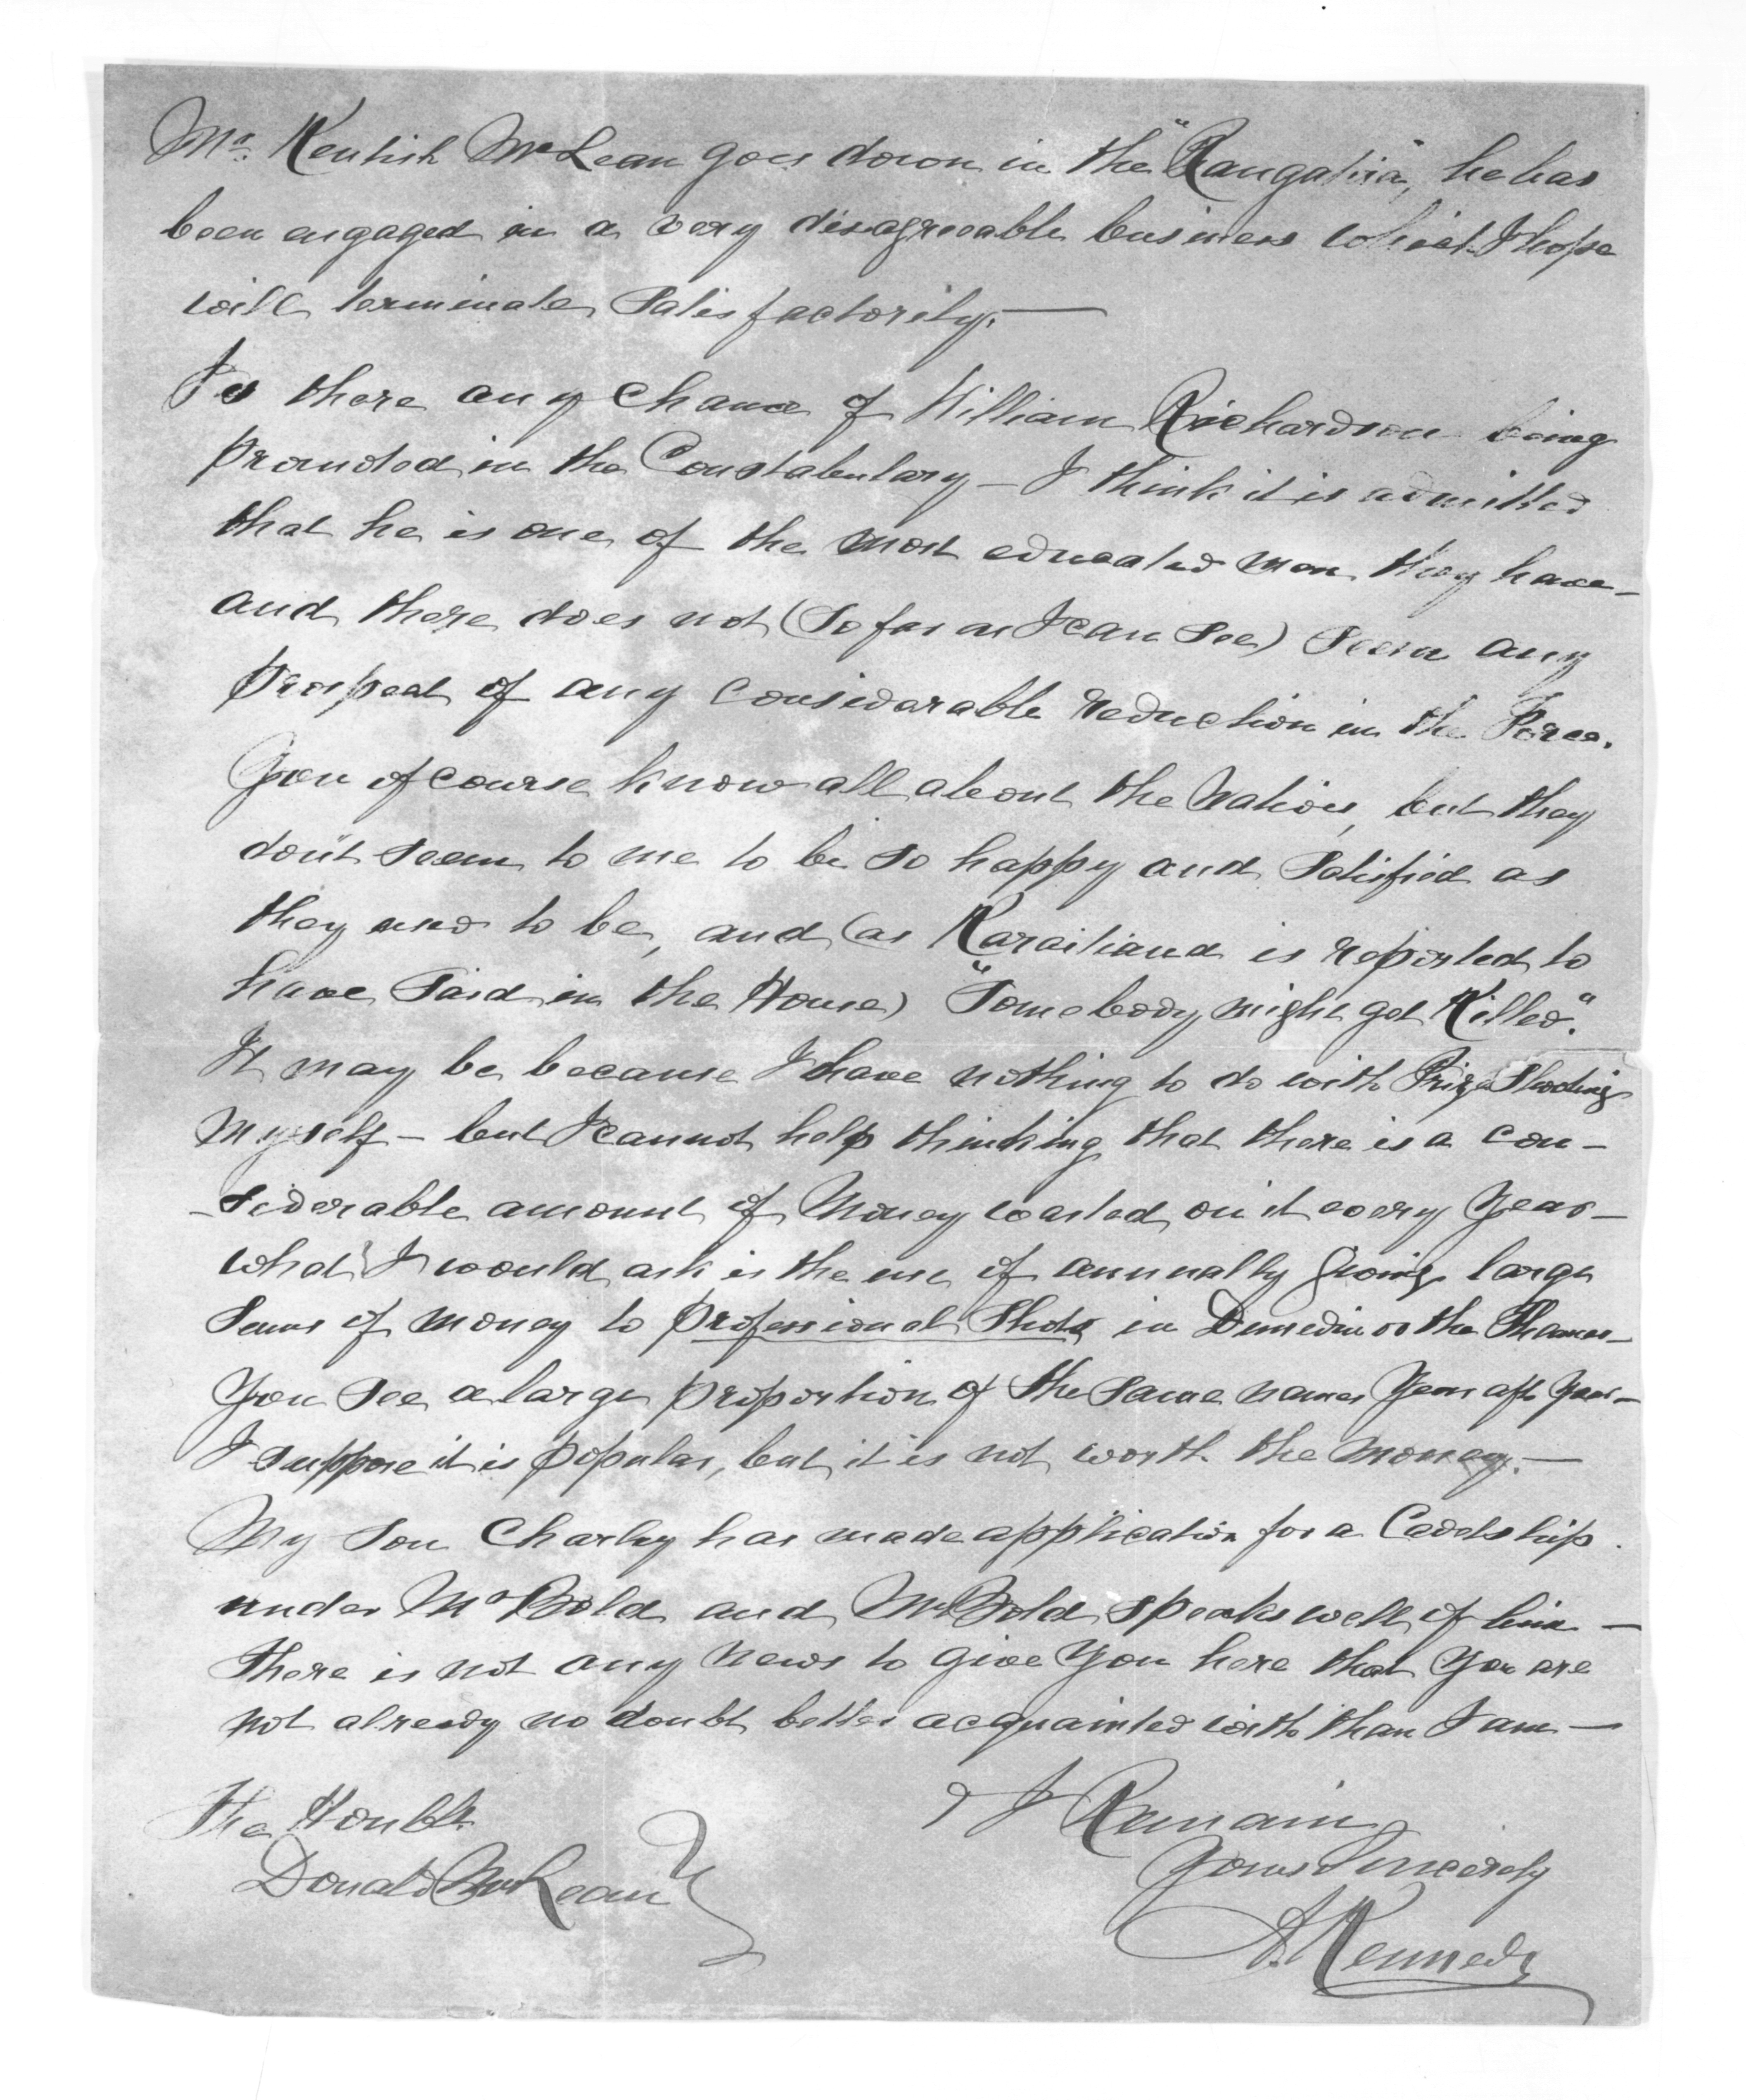 Mr. Kentish McLean goes down in the "Rangatira", he has
been engaged in a very disagreeable business which I hope
will terminate satisfactorily. —
Is there any chance of William Richardson being
promoted in the Constabulary — I think it is admitted
that he is one of the most educated men they have —
and there does not (so far as I can see) seem any
prospect of any considerable reduction in the Force.
You of course know all about the Natives, but they
don't seem to me to be so happy and satisfied as
they used to be, and (as Karaitiana is reported to
have said in the House) "Somebody might get Killed."
It may be because I have nothing to do with Prize Shooting
myself — but I cannot help thinking that there is a con-
-siderable amount of Money wasted on it every Year —
what I would ask is the use of annually giving large
sums of money to professional Shots in Dunedin or the Thames —
You see a large proportion of the same names Year aft Year —
I suppose it is popular, but it is not worth the money. —
My Son Charley has made application for a Cadetship
under Mr Bold and Mr Bold speaks well of him —
there is not any news to give you here that you are
not already no doubt better acquainted with than I am —
I Remain
Yours Sincerely
A. Kennedy
The Honble
Donald McLean